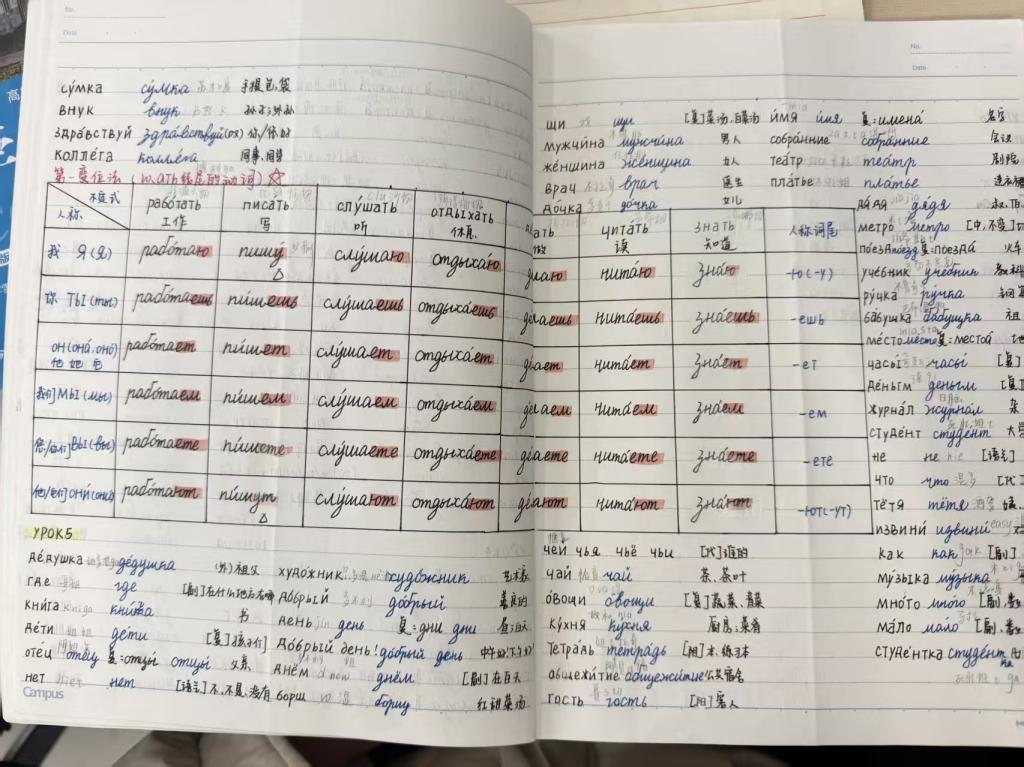 No.
Date
сýмка сýмка 手提包,袋
внук внук
здрáвствуй здрáвствуй(те) 你/您好
коллéга коллéга 同事,同学
第一变位法 (以ать结尾的动词) ☆
人称 不定式 рабóтать 工作 писáть 写 слýшать 听 отдыхáть 休息
我 Я (я) рабóтаю пишý слýшаю отдыхáю
你 ТЫ (ты) рабóтаешь пи́шешь слýшаешь отдыхáешь
ОН (онá, онó) 他 她 它 рабóтает пи́шет слýшает отдыхáет
我们 МЫ (мы) рабóтаем пи́шем слýшаем отдыхáем
您/你们 ВЫ (вы) рабóтаете пи́шете слýшаете отдыхáете
他/她们 ОНИ́ (они) рабóтают пи́шут слýшают отдыхáют
УРОК5
дéдушка дéдушка (外)祖父
где где [副]在什么地方,在哪
кни́га кни́га 书
дéти дéти [复]孩子们
отéц отéц 复:отцы́ отцы 父亲
нет нет [语气]不,不是,没有
худóжник худóжник 艺术家
дóбрый дóбрый 善良的
день день 复:дни дни 昼,白天
дóбрый день! дóбрый день
днём днём [副]在白天
борщ борщ 红甜菜汤
Campus
No.
Date
щи щи [复]菜汤,白菜汤
мужчи́на мужчи́на 男人
жéнщина жéнщина 女人
врач врач 医生
дóчка дóчка 女儿
и́мя и́мя 复:именá 名字
собрáние собрáние 会议
теáтр теáтр 剧院
плáтье плáтье
дя́дя дя́дя
метрó метрó [中,不变]
пóезд пóезд 复:поездá 火车
учéбник учéбник
рýчка рýчка
бáбушка бáбушка 祖
мéсто мéсто 复:местá
часы́ часы́ [复]
дéньги дéньги [复]
журнáл журнáл 杂
студéнт студéнт 大学
не не [语气]
что что [代]
тётя тётя
извини́ извини́
как как [副]
мýзыка мýзыка
мнóго мнóго [副,
мáло мáло [副,
студéнтка студéнтка
читáть 读 знáть 知道 人称词尾
дéлаю читáю знáю -ю(-у)
дéлаешь читáешь знáешь -ешь
дéлает читáет знáет -ет
дéлаем читáем знáем -ем
дéлаете читáете знáете -ете
дéлают читáют знáют -ют(-ут)
чей чья чьё чьи [代]谁的
чай чай 茶,茶叶
óвощи óвощи [复]蔬菜,青菜
кýхня кýхня 厨房;菜肴
тетрáдь тетрáдь [阴]本,练习本
общежи́тие общежи́тие 公共宿舍
гость гость [阳]客人